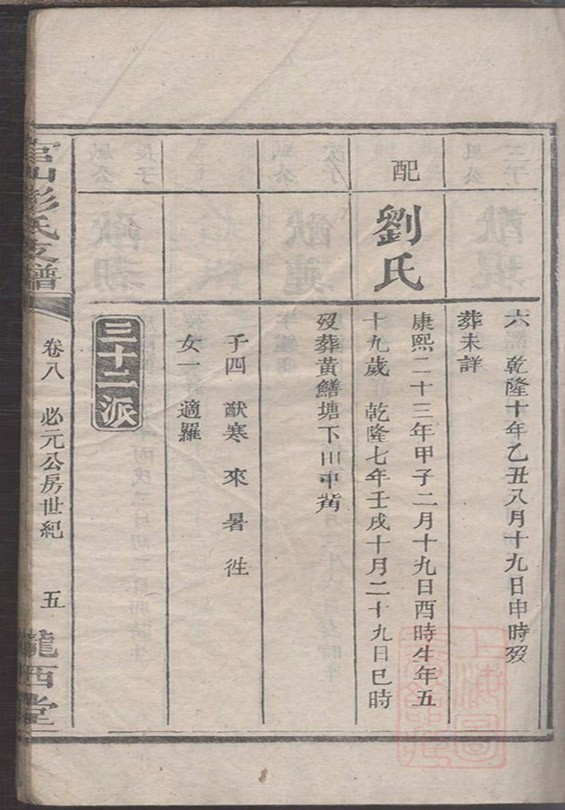 六 乾隆十年乙丑八月十九日申時歿
葬未詳
配
劉氏
康熙二十三年甲子二月十九日酉時生年五
十九歲 乾隆七年壬戌十月二十九日巳時
歿葬黃鱔塘下川中
子四 猷寒 來 暑 徃
女一 適羅
三十二派
彭氏支譜
卷八 必元公房世紀 五
隴西堂